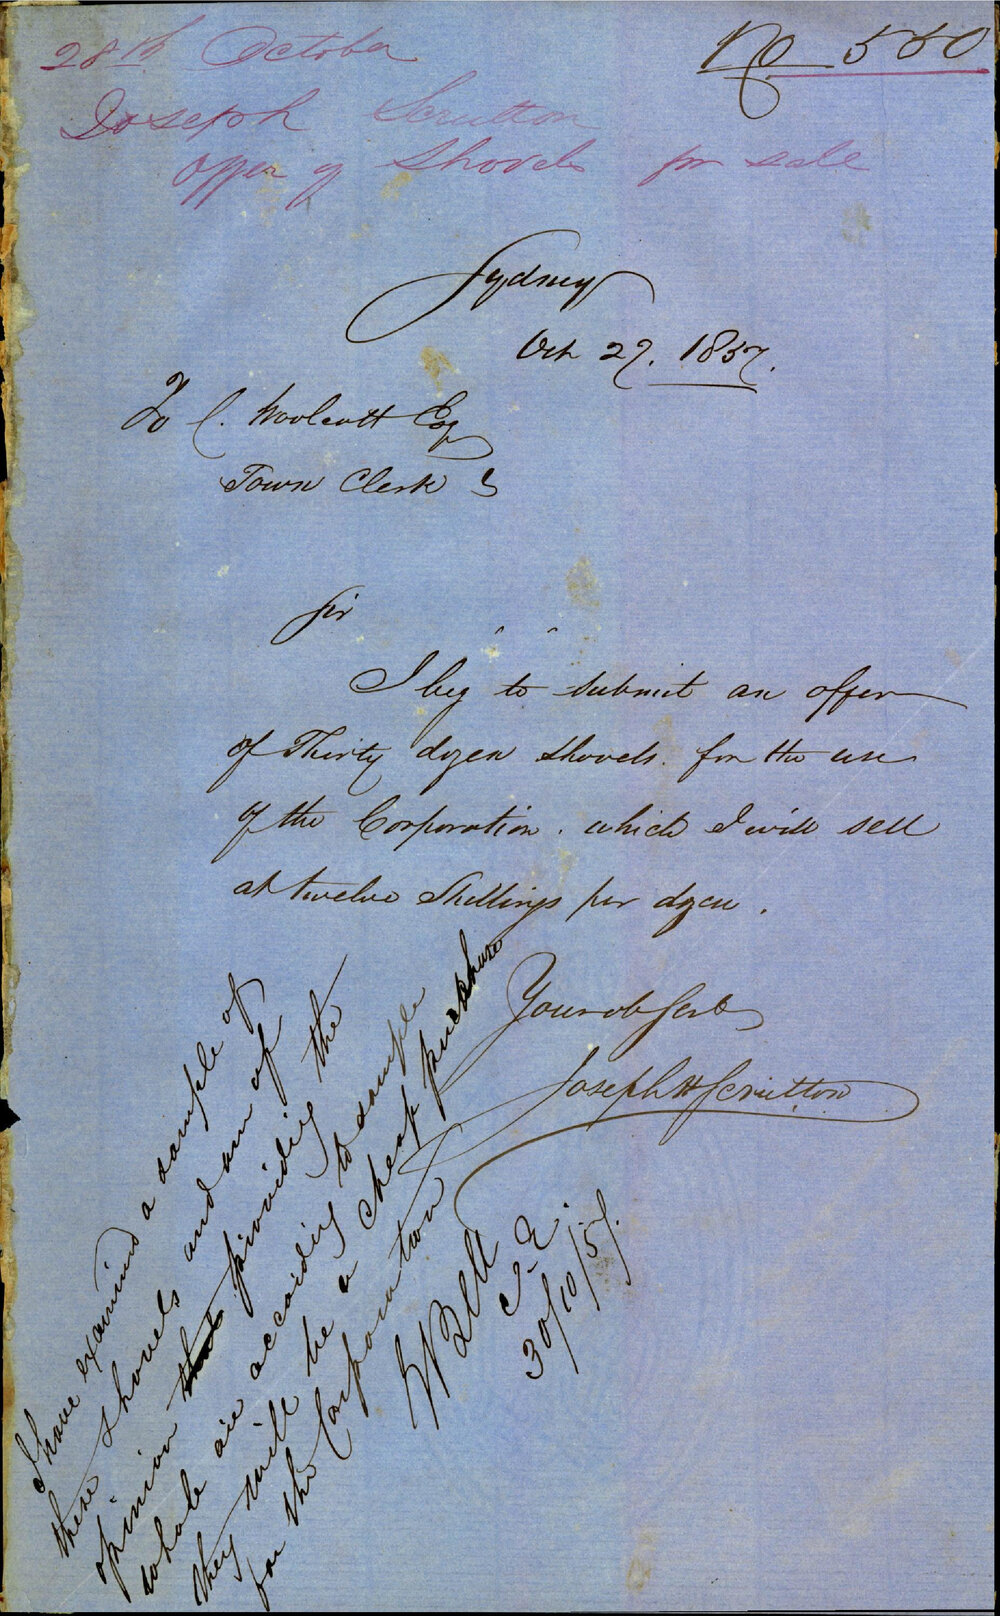 28th October
No 550
Joseph Scrutton
offer of Shovels for sale
Sydney
Oct 27. 1857.
To C. Woolcott Esq
Town Clerk
Sir
I beg to submit an offer
of Thirty dozen Shovels. for the use
of the Corporation. which I will sell
at twelve Shillings per dozen.
Your ob Serv
Joseph H Scrutton
I have examined a sample of
these shovels and am of
opinion that providing the
whole are according to sample
they will be a cheap purchase
for the Corporation
W Bell
C.E.
30/10/57.